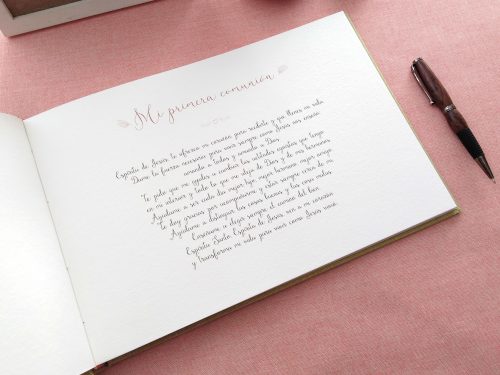 Mi primera comunión
Espíritu de Jesús, te ofrezco mi corazón para recibirte y que llenes mi vida.
Dame la fuerza necesaria para vivir siempre como Jesús nos enseñó:
amando a todos y amando a Dios.
Te pido que me ayudes a cambiar las actitudes egoístas que tengo
en mi interior y todo lo que me aleja de Dios y de mis hermanos.
Ayúdame a ser cada día mejor hijo, mejor hermano, mejor amigo.
Te doy gracias por acompañarme y estar siempre cerca de mí.
Ayúdame a distinguir las cosas buenas y las cosas malas.
Enséñame a elegir siempre el camino del bien.
Espíritu Santo, Espíritu de Jesús, ven a mi corazón
y transforma mi vida para vivir como Jesús vivió.